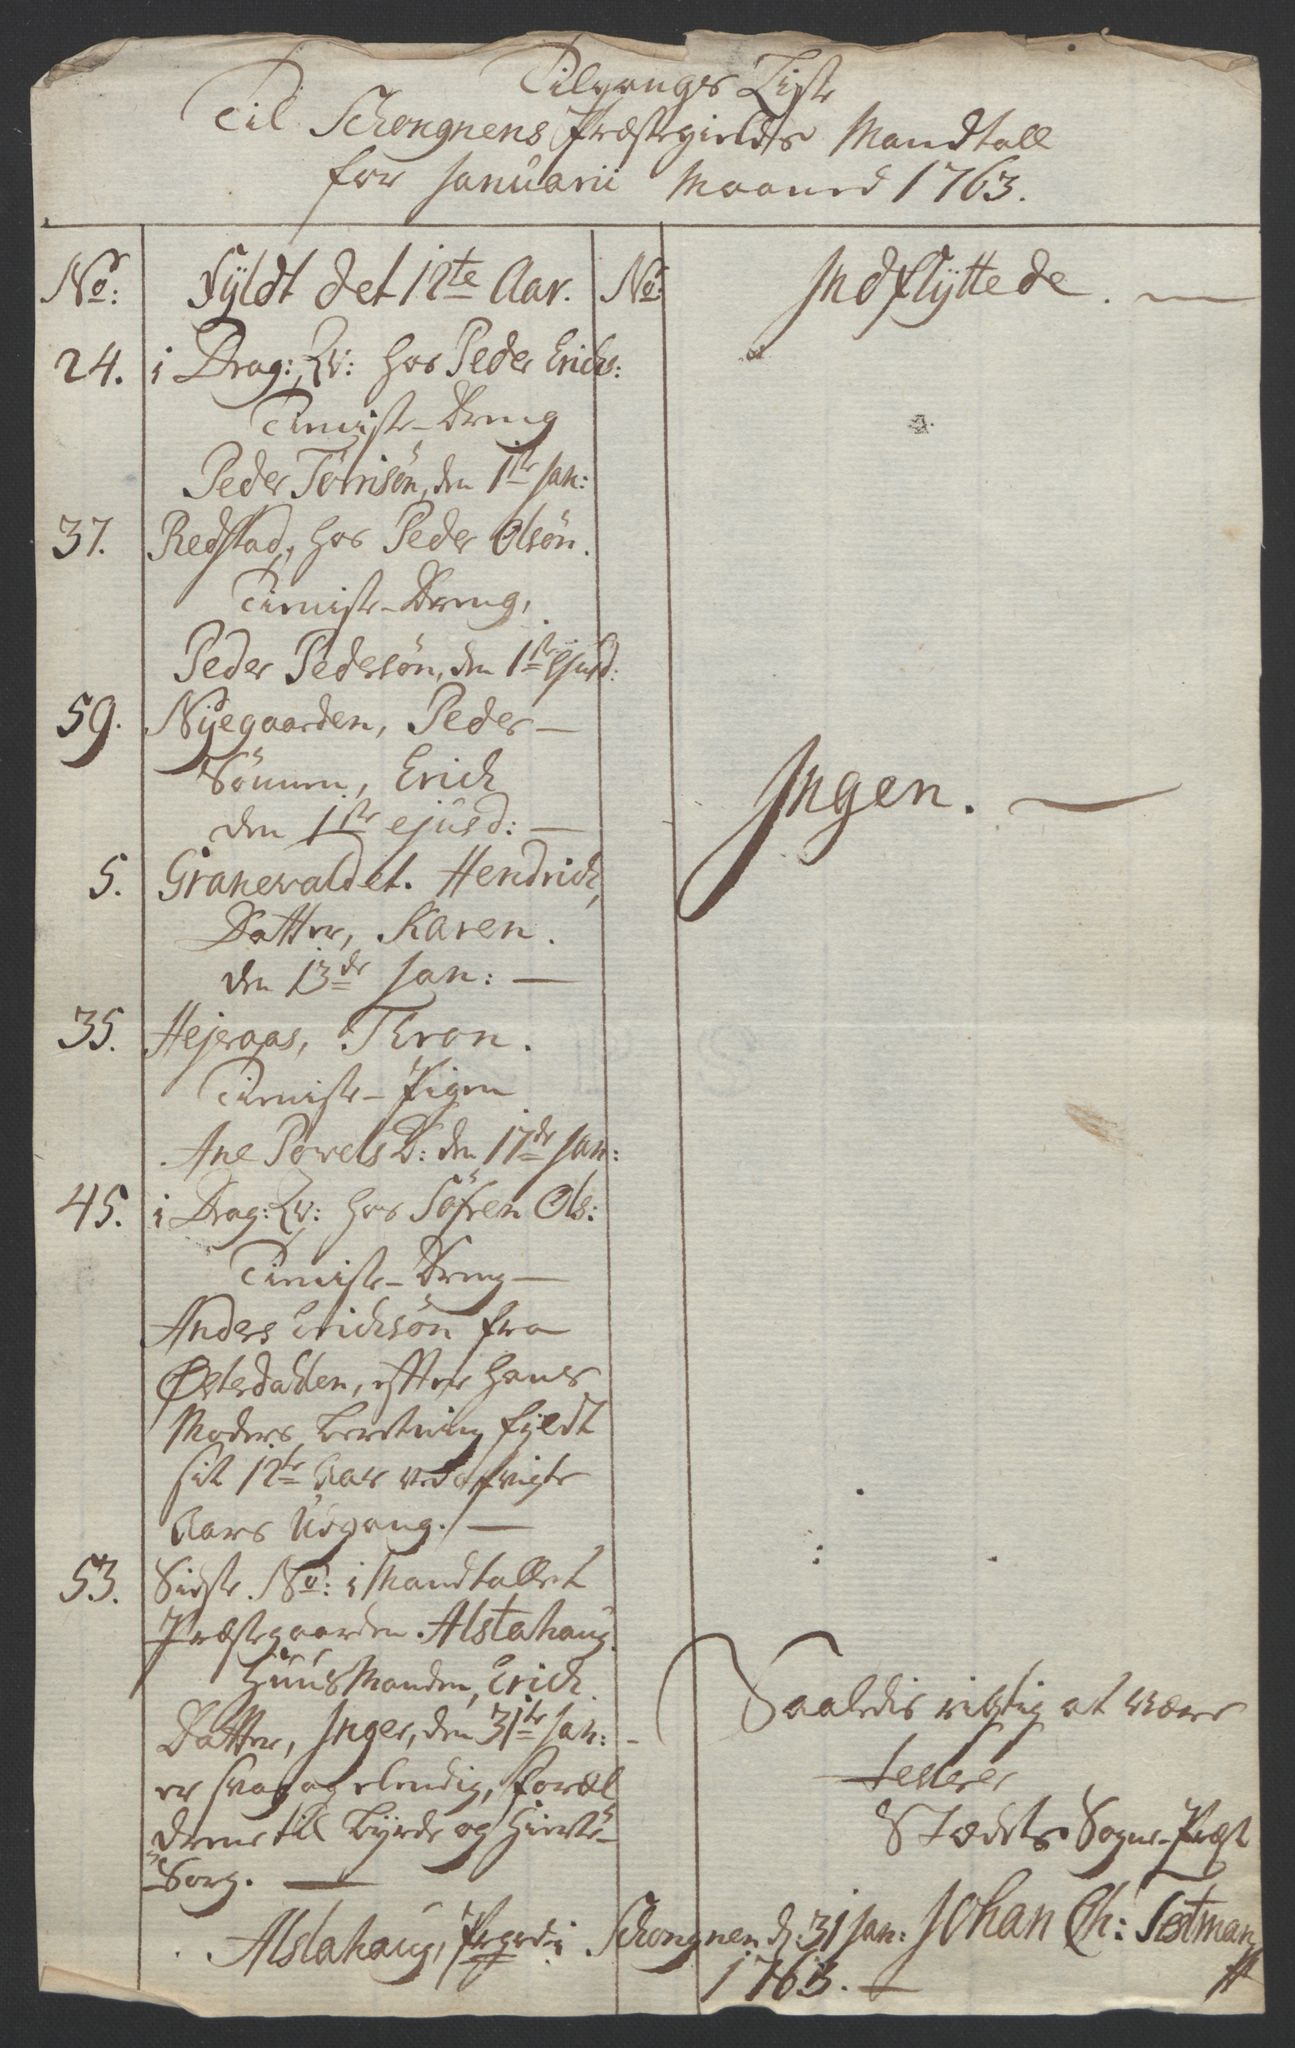 Tilgangs Liste
Til Schongnens Præstegields Mandtall
for Januarii Maaned 1763.
No: Fyldt det 12te Aar. No: Indflyttede. —
24. i Drag: Qv: hos Peder Erichs:
Tieniste-Dreng
Peder Törrisön, den 1ste Jan:
37. Redstad, hos Peder Olsön.
Tieniste-Dreng,
Peder Pedersön, den 1ste ejusd:
59. Nyegaarden, Peder —
Sönnen, Erich
den 1ste ejusd: —
Ingen. —
5. Granevaldet. Hendrich,
Datter, Karen.
den 13de Jan: —
35. Hejeraas, Thron.
Tieniste-Pigen
Ane Povels D: den 17de Jan:
45. i Drag: Qv: hos Söfren Ols:
Tieniste-Dreng —
Anders Erichsön fra
Østerdahlen, efter hans
Moders beretning fyldt
sit 12te Aar ved afvigte
Aars Udgang. —
53. Sidste No: i Mandtallet
Præstegaarden Alstahaug.
Huusmanden, Erich
Datter, Inger, den 31te Jan: -
er svag og elendig, foræl
drene til byrde og Hierte-
Sorg. —
Saaledis rigtig at være
testerer
Stædets Sogne-Præst
Alstahaug, Prgrd i Schongnen d: 31 Jan: Johan Ch: Testman
1763. —